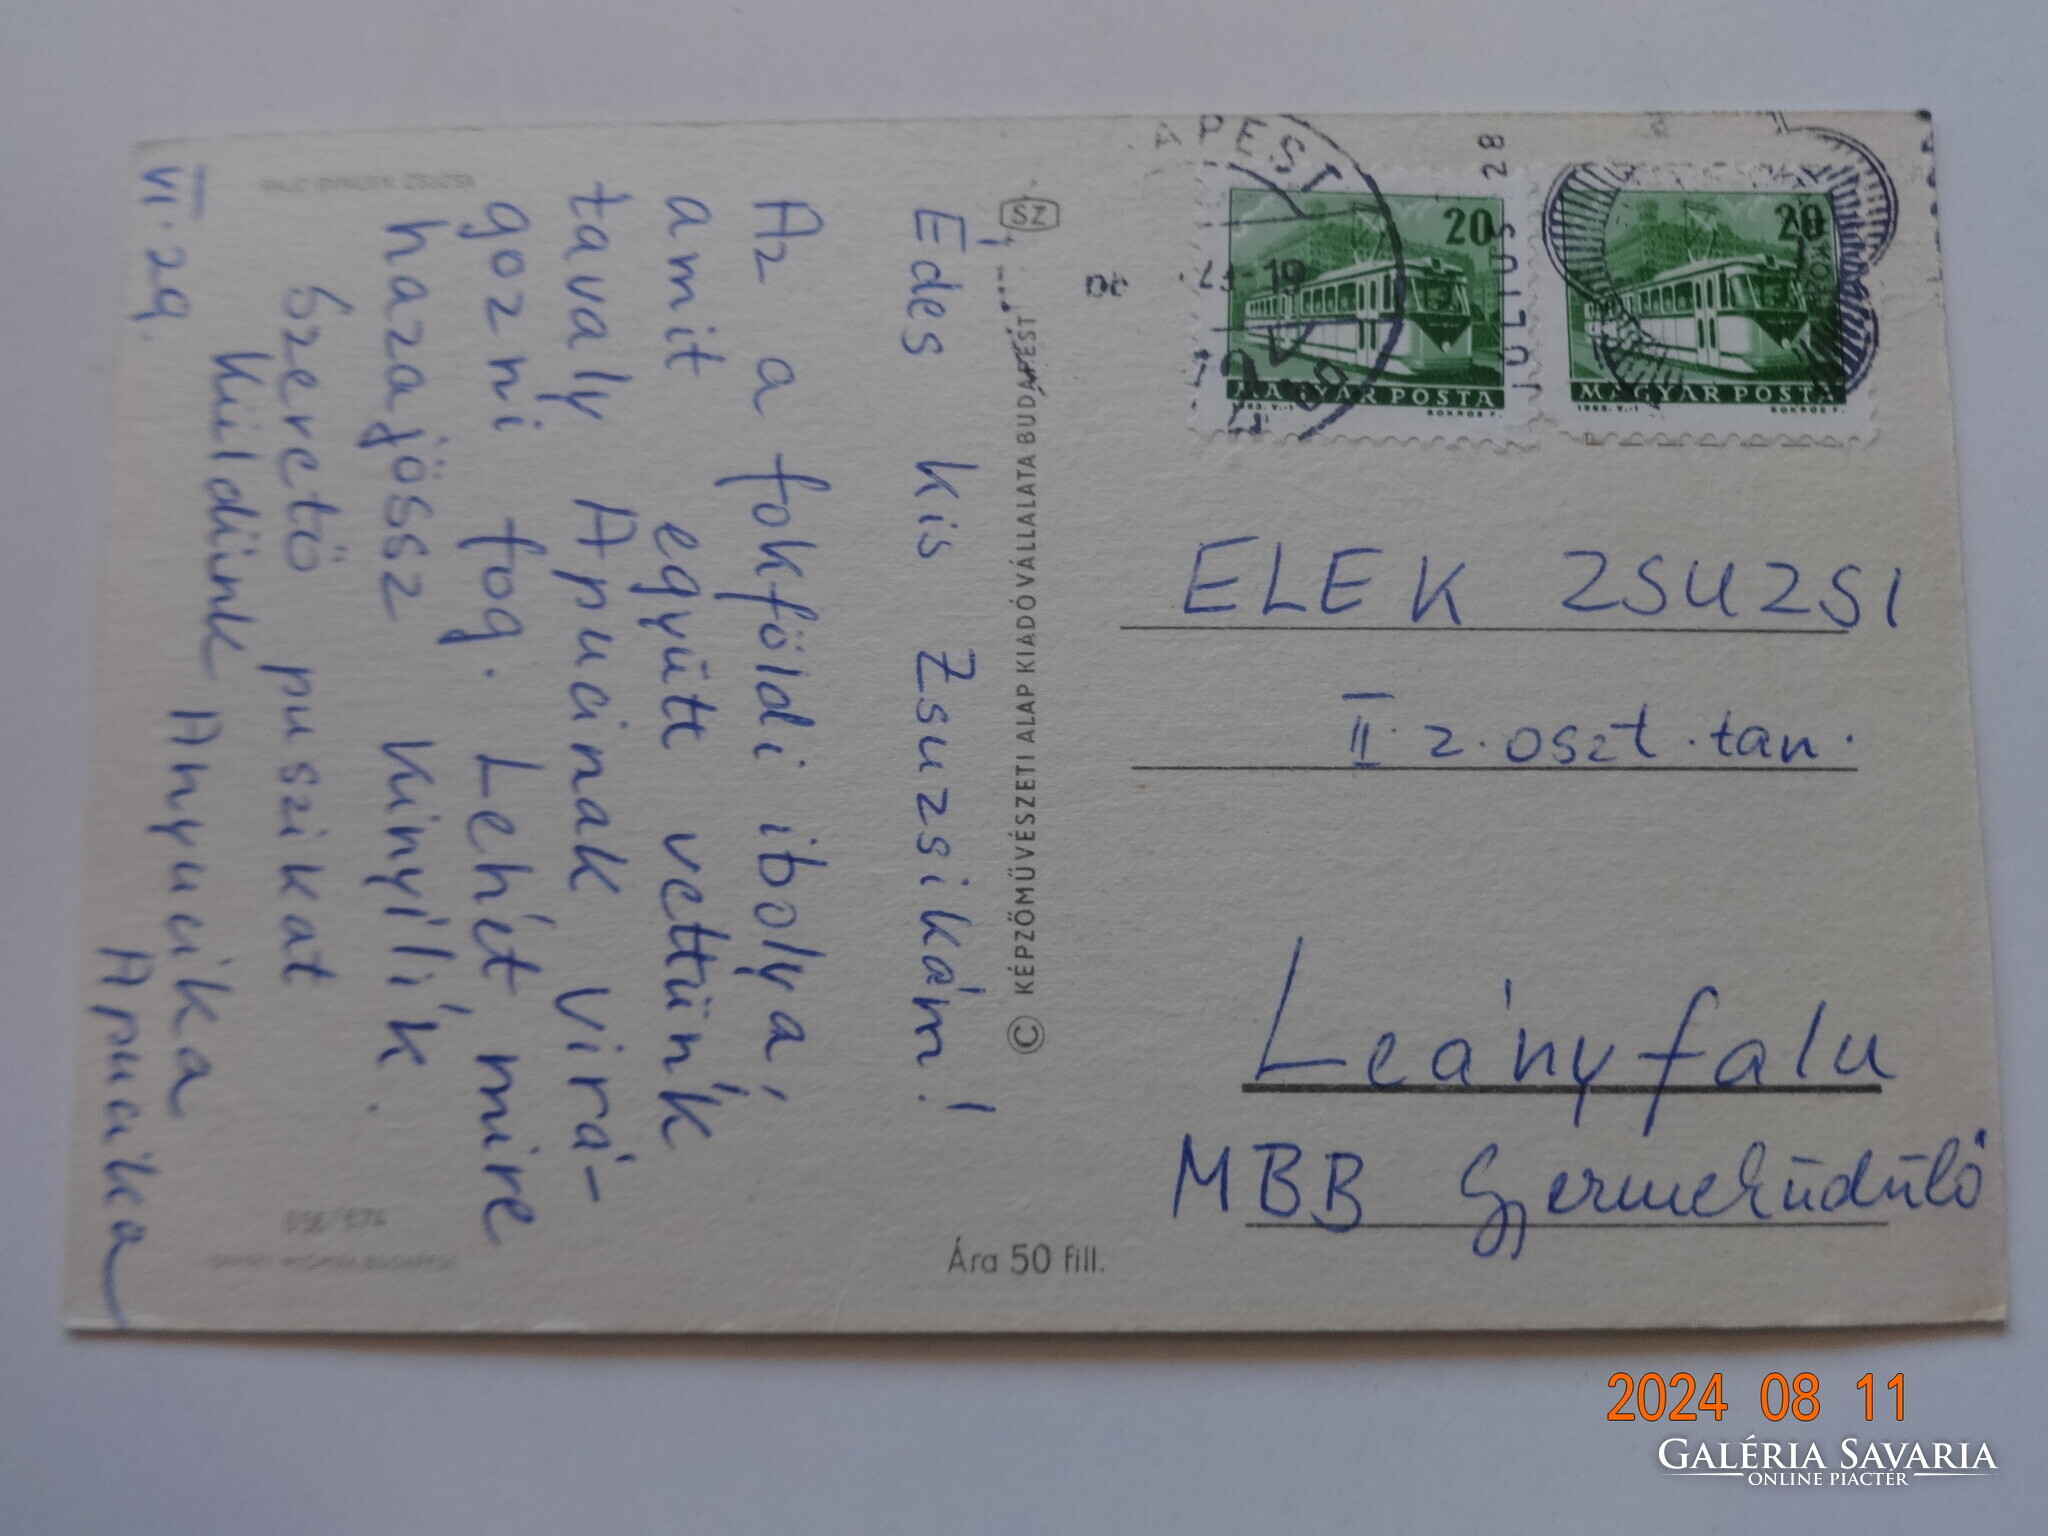 Édes kis Zsuzsikám!
Az a fokföldi ibolya,
amit együtt vettünk
tavaly Apucinak virá-
gozni fog. Lehét mire
hazajössz kinyílik.
Szerető puszikat
küldünk Anyucika
Apucika
VI. 29.
SZ
© KÉPZŐMŰVÉSZETI ALAP KIADÓVÁLLALATA BUDAPEST
Ára 50 fill.
20
MAGYAR POSTA
1963. V.-1
BOKROS F.
20
MAGYAR POSTA
1963. V.-1
BOKROS F.
JULIUS 28
ELEK ZSUZSI
II. 2. oszt. tan.
Leányfalu
MBB Gyermeküdülő
2024 08 11
GALÉRIA SAVARIA
ONLINE PIACTÉR